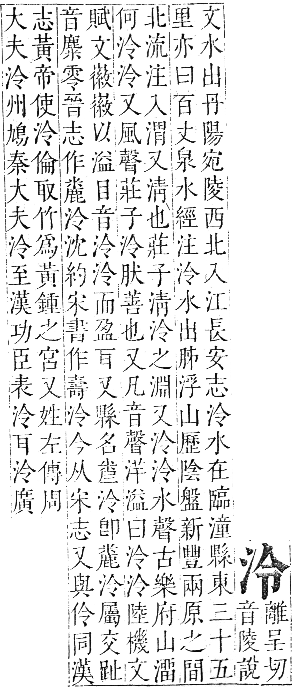 泠
離呈切
音陵說
文水出丹陽宛陵西北入江長安志泠水在臨潼縣東三十五
里亦曰百丈泉水經注泠水出肺浮山歷陰盤新豐兩原之間
北流注入渭又淸也莊子淸泠之淵又泠泠水聲古樂府山溜
何泠泠又風聲莊子泠肰善也又凡音聲洋溢曰泠泠陸機文
賦文薇薇以溢目音泠泠而盈耳又縣名泠卽麊泠屬交趾
音麋零晉志作麊泠沈約宋書作壽泠今从宋志又與伶同漢
志黃帝使泠倫取竹爲黃鍾之宮又姓左傳周
大夫泠州鳩秦大夫泠至漢功臣表泠耳泠廣